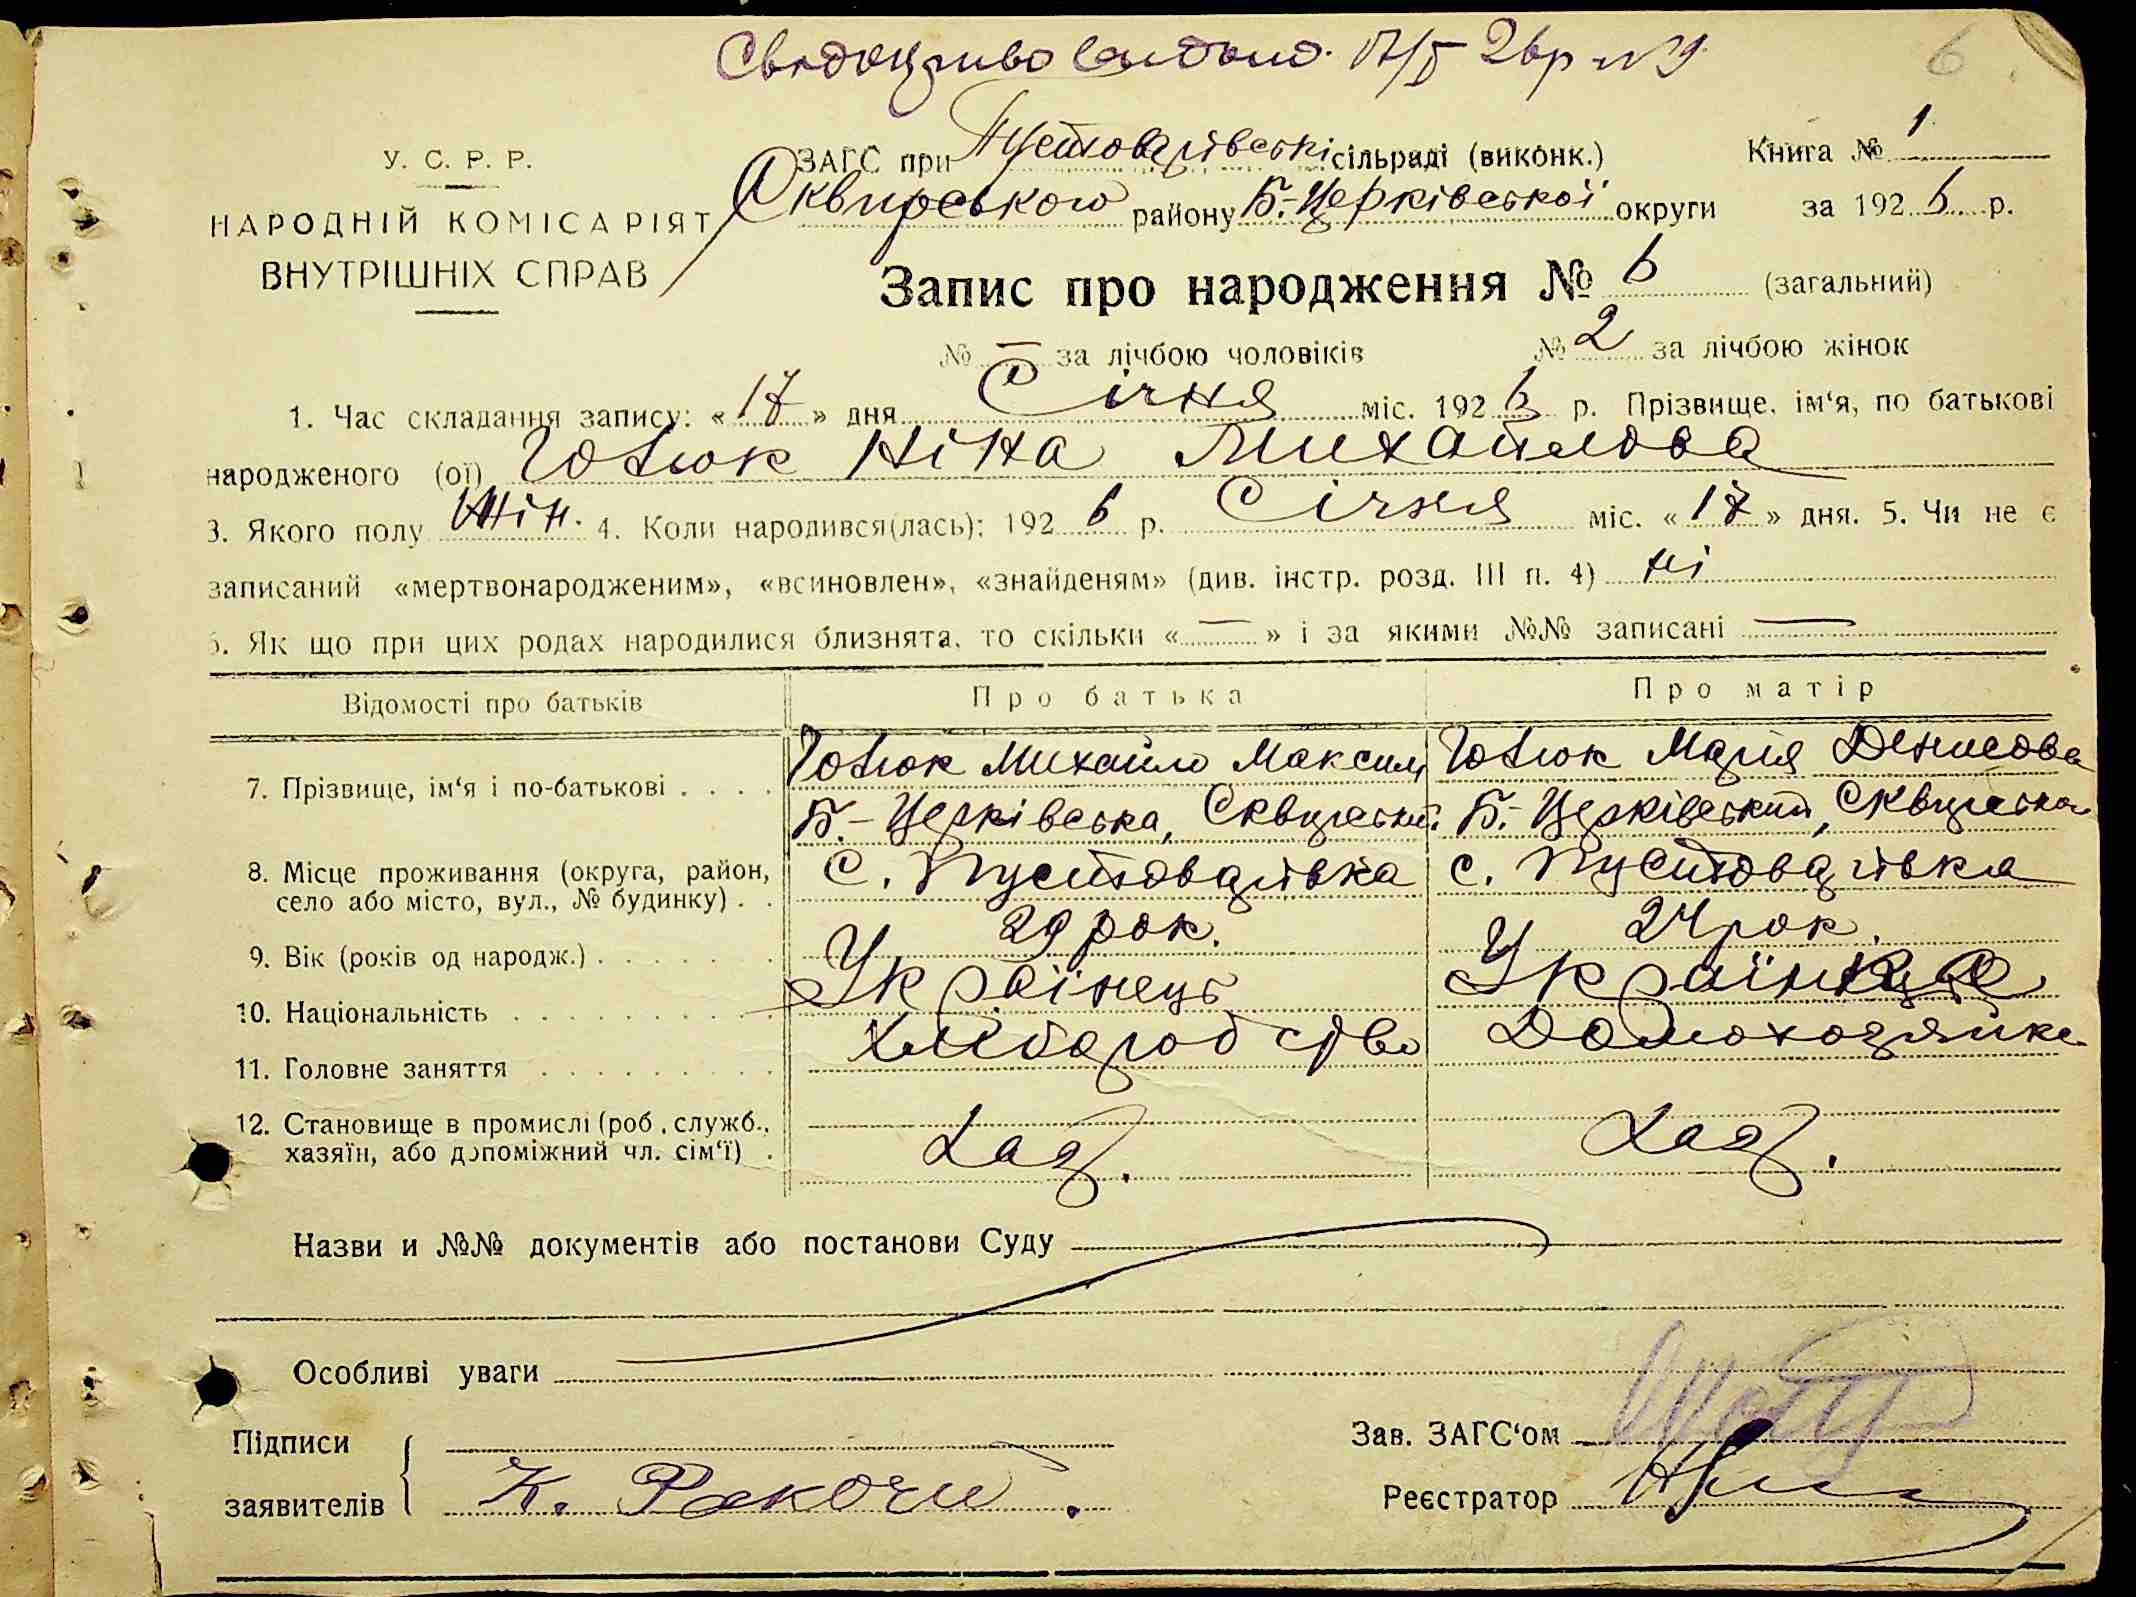 Свидоцтво видано. 17/I 26 р №9
6
У. С. Р. Р.
НАРОДНІЙ КОМІСАРІЯТ
ВНУТРІШНІХ СПРАВ
ЗАГС при Пустоварівській сільраді (виконк.) Книга № 1
Сквирського району Б.-Церківської округи за 1926 р.
Запис про народження № 6 (загальний)
№ — за лічбою чоловіків № 2 за лічбою жінок
1. Час складання запису: «17» дня Січня міс. 1926 р. Прізвище, ім‘я, по батькові
народженого (ої) Ніна Михайлова
3. Якого полу Жін. 4. Коли народився(лась): 1926 р. Січня міс. «17» дня. 5. Чи не є
записаний «мертвонародженим», «всиновлен», «знайденям» (див. інстр. розд. III п. 4) ні
6. Як що при цих родах народилися близнята, то скільки «—» і за якими №№ записані —
Відомості про батьків Про батька Про матір
7. Прізвище, ім‘я і по-батькові . . . . Михайло Максим Марія Денисова
Б.-Церківська, Сквирський Б.-Церківський, Сквирська
8. Місце проживання (округа, район,
село або місто, вул., № будинку) . . с. Пустоварівка с. Пустоварівка
9. Вік (років од народж.) . . . . . . 29 рок. 24 рок.
10. Національність . . . . . . . . . . Українець Українка
11. Головне заняття . . . . . . . . . Хліборобство Домохозяйка
12. Становище в промислі (роб., служб.,
хазяїн, або допоміжний чл. сім‘ї) . Хаз. Хаз.
Назви и №№ документів або постанови Суду
Особливі уваги
Підписи Зав. ЗАГС‘ом
заявителів К. Ракочи. Реєстратор